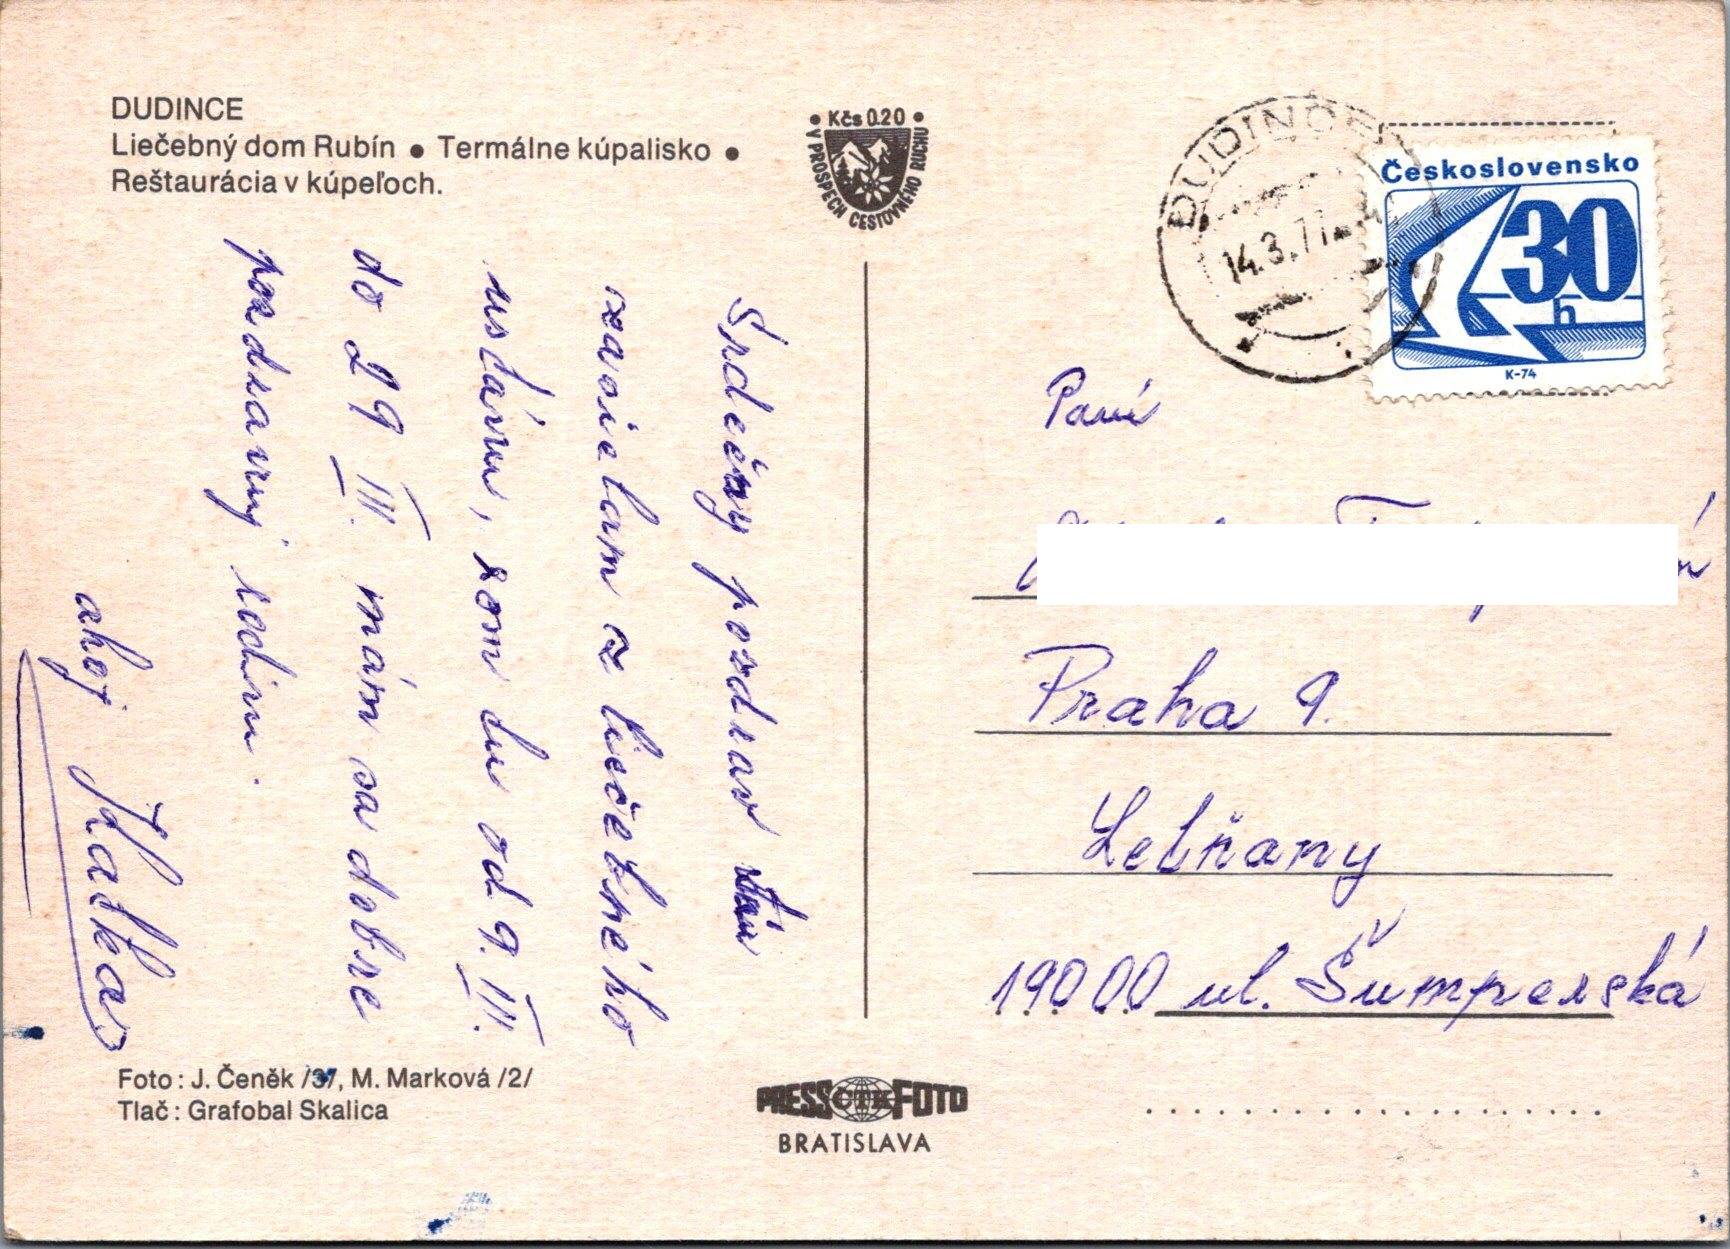 DUDINCE
Liečebný dom Rubín ● Termálne kúpalisko ●
Reštaurácia v kúpeľoch.
● Kčs 0.20 ●
V PROSPECH CESTOVNÉHO RUCHU
DUDINCE
14.3.77
Československo
30
h
K-74
Srdečný pozdrav Vám
zasielam z liečebného
ústavu, som tu od 9. III.
do 29 III. mám sa dobre
pozdravuj rodinu.
ahoj Katka
Paní
Praha 9.
Letňany
19000 ul. Šumperská
Foto: J. Čeněk /3/, M. Marková /2/
Tlač: Grafobal Skalica
PRESS ČTK FOTO
BRATISLAVA